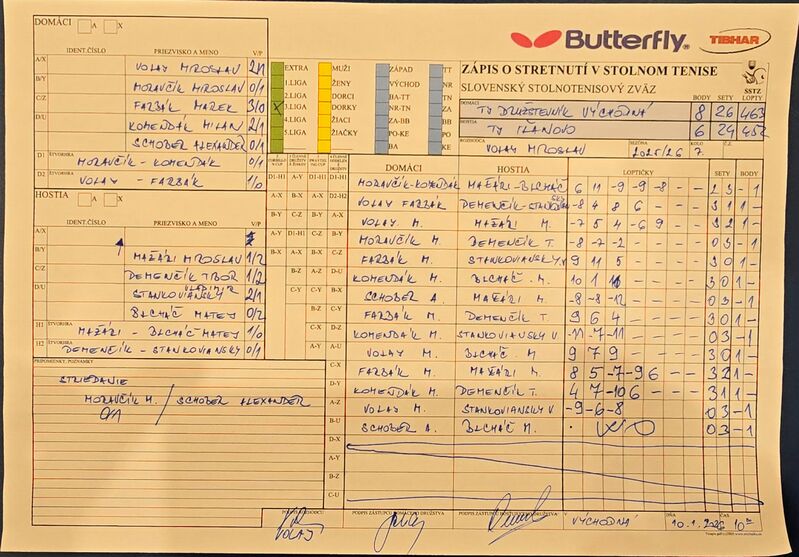 DOMÁCI A X
Butterfly TIBHAR
IDENT.ČÍSLO PRIEZVISKO A MENO V/P
A/X VOLAY MIROSLAV 2/1
B/Y MORAVČÍK MIROSLAV 0/1
C/Z FARBÁK MAREK 3/0
D/U KOMENDÁK MILAN 2/1
SCHOBER ALEXANDER 0/1
D1 ŠTVORHRA MORAVČÍK - KOMENDÁK 0/1
D2 ŠTVORHRA VOLAY - FARBÁK 1/0
EXTRA MUŽI ZÁPAD TT
1.LIGA ŽENY VÝCHOD NR
2.LIGA DORCI BA-TT TN
X 3.LIGA DORKY NR-TN ZA
4.LIGA ŽIACI ZA-BB BB
5.LIGA ŽIAČKY PO-KE PO
BA KE
ZÁPIS O STRETNUTÍ V STOLNOM TENISE
SLOVENSKÝ STOLNOTENISOVÝ ZVÄZ
SSTZ
BODY SETY LOPTY
DOMÁCI TJ DRUŽSTEVNÍK VÝCHODNÁ 8 26 463
HOSTIA TJ IĽANOVO 6 24 452
ROZHODCA VOLAY MIROSLAV SEZÓNA 2025/26 KOLO 7. Č.
HOSTIA A X
IDENT.ČÍSLO PRIEZVISKO A MENO V/P
A/X
B/Y MAŽÁRI MIROSLAV 1/2
C/Z DEMENČÍK TIBOR 1/2
D/U STANKOVIANSKY VLADIMÍR 2/1
BLCHÁČ MATEJ 0/2
H1 ŠTVORHRA MAŽÁRI - BLCHÁČ MATEJ 1/0
H2 ŠTVORHRA DEMENČÍK - STANKOVIANSKY 0/1
PRIPOMIENKY, POZNÁMKY
STRIEDANIE
MORAVČÍK M. / SCHOBER ALEXANDER
0/1
DOMÁCI HOSTIA LOPTIČKY SETY BODY
D1-H1 A-Y D1-H1 D1-H1 MORAVČÍK-KOMENDÁK MAŽÁRI-BLCHÁČ 6 11 -9 -9 -8 - - 2 3 - 1
A-X B-X A-X D2-H2 VOLAY FARBÁK DEMENČÍK-STANKOVIANSKY -8 4 8 6 - - - 3 1 1 -
B-Y C-Z B-Y A-X VOLAY M. MAŽÁRI M. -7 5 4 -6 9 - - 3 2 1 -
A-Y D1-H1 C-Z B-Y MORAVČÍK M. DEMENČÍK T. -8 -7 -2 - - - - 0 3 - 1
B-X A-X C-Z FARBÁK M. STANKOVIANSKY V. 9 11 5 - - - - 3 0 1 -
B-Z D-U KOMENDÁK M. BLCHÁČ M. 10 1 11 - - - - 3 0 1 -
C-Y SCHOBER A. MAŽÁRI M. -8 -8 -12 - - - - 0 3 - 1
FARBÁK M. DEMENČÍK T. 9 6 4 - - - - 3 0 1 -
C-X D-Z KOMENDÁK M. STANKOVIANSKY V. -11 -7 -11 - - - - 0 3 - 1
A-U VOLAY M. BLCHÁČ M. 9 7 9 - - - - 3 0 1 -
C-X FARBÁK M. MAŽÁRI M. 8 5 -7 -9 6 - - 3 2 1 -
D-Y KOMENDÁK M. DEMENČÍK T. 4 7 -10 6 - - - 3 1 1 -
A-Z VOLAY M. STANKOVIANSKY V. -9 -6 -8 - - - - 0 3 - 1
B-U SCHOBER A. BLCHÁČ M. WO 0 3 - 1
D-X
A-Y
B-Z
C-U
VOLAY
PODPIS ZÁSTUPCU DOMÁCEHO DRUŽSTVA
V VÝCHODNÁ DŇA 10.1.2026